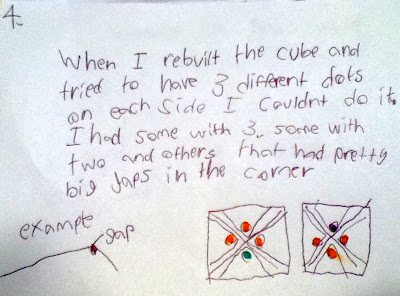 4.
When I rebuilt the cube and
tried to have 3 different dots
on each side I Couldnt do it.
I had some with 3, some with
two and others that had pretty
big gaps in the corner
example
gap